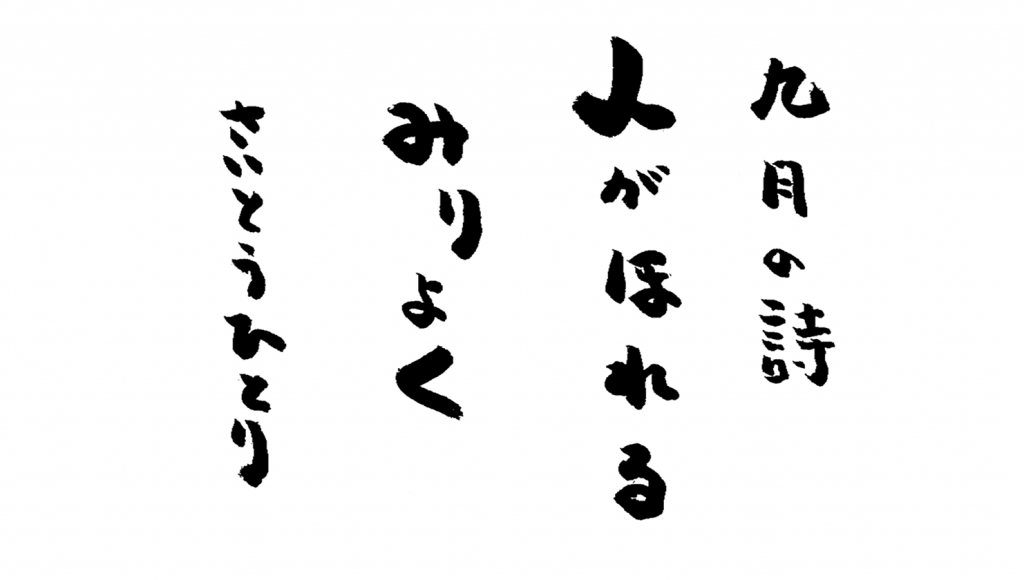 九月の詩
人がほれる
みりよく
さいとうひとり